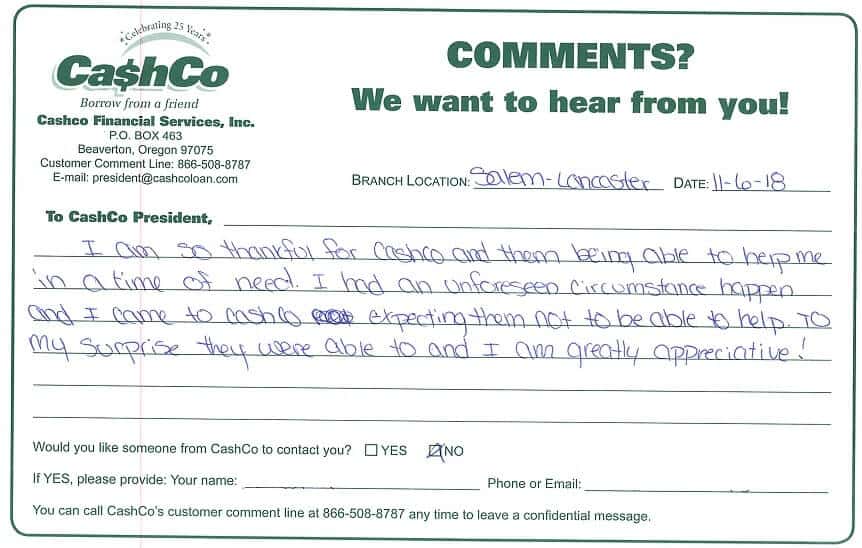 Celebrating 25 Years
Ca$hCo
Borrow from a friend
Cashco Financial Services, Inc.
P.O. BOX 463
Beaverton, Oregon 97075
Customer Comment Line: 866-508-8787
E-mail: president@cashcoloan.com
COMMENTS?
We want to hear from you!
BRANCH LOCATION: Salem-Lancaster DATE: 11-6-18
To CashCo President,
I am so thankful for Cashco and them being able to help me
in a time of need. I had an unforeseen circumstance happen
and I came to cashco expecting them not to be able to help. TO
my surprise they were able to and I am greatly appreciative!
Would you like someone from CashCo to contact you? YES NO
If YES, please provide: Your name: Phone or Email:
You can call CashCo's customer comment line at 866-508-8787 any time to leave a confidential message.